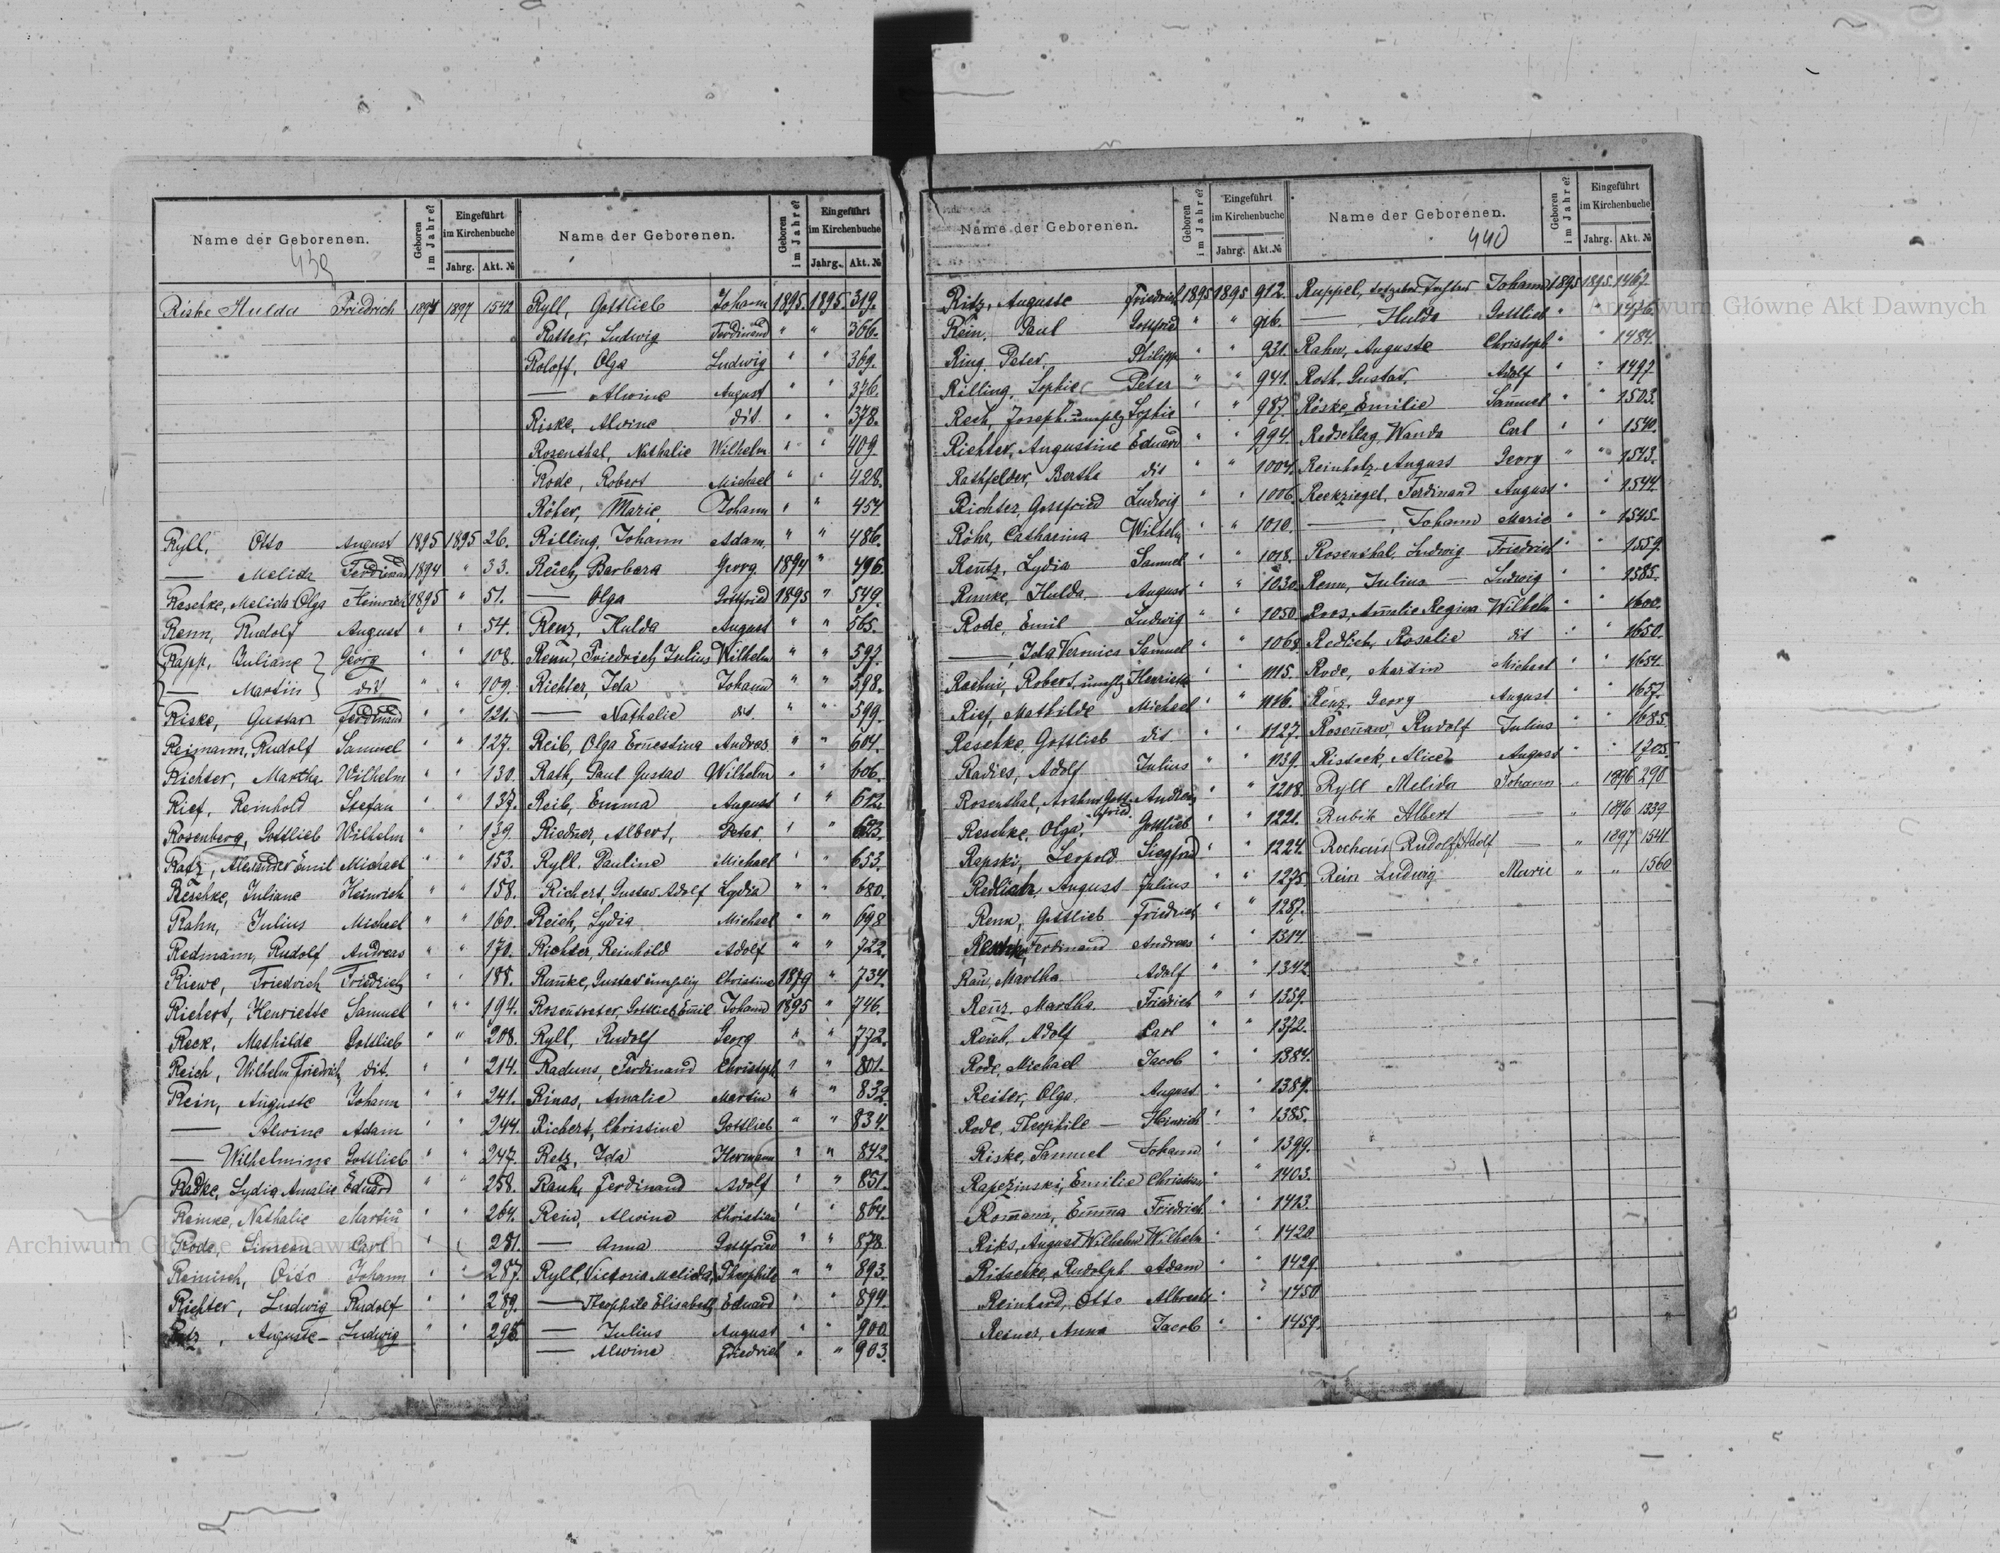 Name der Geborenen.
439
Geboren im Jahre?
Eingeführt im Kirchenbuche
Jahrg. Akt. №
Riske Hulda Friedrich 1897 1542
Ryll, Otto August 1895 1895 26.
— Melida Ferdinand 1894 " 33.
Reschke, Melida Olga Heinrich 1895 " 51.
Renn, Rudolf August " " 54.
Rapp, Juliane Georg " " 108.
— Martin dit " " 109.
Riske, Gustav Ferdinand " " 121.
Reimann, Rudolf Samuel " " 127.
Richter, Martha Wilhelm " " 130.
Rief, Reinhold Stefan " " 137.
Rosenberg, Gottlieb Wilhelm " " 139
Ratz, Alexander Emil Michael " " 153.
Reschke, Juliane Heinrich " " 158.
Rahn, Julius Michael " " 160.
Redmann, Rudolf Andreas " " 170.
Riewe, Friedrich Friedrich " " 185.
Richert, Henriette Samuel " " 194.
Reck, Mathilde Gottlieb " " 208.
Reich, Wilhelm Friedrich dit. " " 214.
Rein, Auguste Johann " " 241.
— Alwine Adam " " 244.
— Wilhelmine Gottlieb " " 247.
Radke, Lydia Amalie Eduard " " 258.
Reinke, Nathalie Martin " " 264.
Rode, Simeon Carl " " 281.
Reinisch, Otto Johann " " 287.
Richter, Ludwig Rudolf " " 289.
Auguste — Ludwig " " 295
Name der Geborenen.
Geboren im Jahre?
Eingeführt im Kirchenbuche
Jahrg. Akt. №
Ryll, Gottlieb Johann 1895. 1895. 319.
Ratter, Ludwig Ferdinand " " 366.
Roloff, Olga Ludwig " " 369.
— Alwine August " " 376.
Riske, Alwine dit. " " 378.
Rosenthal, Nathalie Wilhelm " " 409.
Rode, Robert Michael " " 428.
Röher, Marie Johann " " 454
Rilling, Johann Adam. " " 486.
Reich, Barbara Georg 1894 " 496.
— Olga Gottfried 1895 " 549.
Renz, Hulda August " " 565.
Renn, Friedrich Julius Wilhelm " " 597.
Richter, Ida Johann " " 598.
— Nathalie dit. " " 599.
Reib, Olga Ernestina Andreas " " 604.
Rath, Paul Gustav Wilhelm " " 606.
Reib, Emma August " " 612
Riedner, Albert, Peter " "
Ryll. Pauline Michael " " 653.
Richert, Gustav Adolf Lydia " " 680.
Reich, Lydia Michael " " 698
Richter, Reinhold Adolf " " 722.
Remke, Gustav Christine 1879 " 734.
Rosentreter, Gottlieb Emil Johann 1895 " 746.
Ryll, Rudolf Georg " " 772.
Raduns, Ferdinand Christoph " " 801.
Rinas, Amalie Martin " " 832.
Richert, Christine Gottlieb " " 834.
Retz, Ida Hermann " " 842.
Rauh, Ferdinand Adolf " " 851.
Rein, Alwine Christian " " 864.
— Anna Gottfried " " 878
Ryll, Victoria Melida, Theophile " " 893.
— Theophile Elisabeth Eduard " " 899.
— Julius August " " 900
— Alwine Friedrich " " 903.
Name der Geborenen.
Geboren im Jahre?
Eingeführt im Kirchenbuche
Jahrg. Akt.№
Ritz, Auguste Friedrich 1895 1895 912.
Rein, Paul Gottfried " " 916.
Ring, Peter, Philipp " " 931.
Rilling, Sophie Peter " " 941.
Rech, Joseph Sophie " " 987.
Richter, Augustine Eduard " " 994.
Rathfelder, Bertha dit " " 1004.
Richter, Gottfried Ludwig " " 1006.
Röhr, Catharina Wilhelm " " 1010.
Rentz, Lydia Samuel " " 1018.
Remke, Hulda August " " 1030
Rode, Emil Ludwig " " 1050
—, Ida Veronica Samuel " " 1068
Robert, Henriette " " 1115.
Rief, Mathilde Michael " " 1116.
Reschke, Gottlieb dit " " 1127.
Radies, Adolf Julius " " 1139.
Rosenthal, Arthur Gottfried Andreas " " 1218.
Reschke, Olga, Gottlieb " " 1221.
Rapski, Leopold Siegfried " " 1224.
Redlich, August Julius " " 1275.
Renn, Gottlieb Friedrich " " 1287.
Ferdinand Andreas " " 1314.
Rau, Martha Adolf " " 1342
Renz, Martha. Friedrich " " 1359.
Reich, Adolf Carl " " 1372.
Rode, Michael Jacob " " 1384.
Reiter, Olga, August " " 1389.
Rode, Theophile — Heinrich " " 1385.
Riske, Samuel Johann " " 1399.
Rapczinski, Emilie Christian " " 1403.
Romann, Emma Friedrich " " 1413.
Riks, August Wilhelm Wilhelm " " 1420
Ritschke, Rudolph Adam " " 1429.
Reinhard, Otto Albrecht " " 1450
Resner, Anna Jacob " " 1459.
Name der Geborenen.
440
Geboren im Jahre?
Eingeführt im Kirchenbuche
Jahrg. Akt.№
Ruppel, Johann 1895 1895. 1467.
— Hulda Gottlieb " " 1476.
Rahn, Auguste Christoph " " 1484.
Roth, Gustav, Adolf " " 1497
Röske, Emilie Samuel " " 1503.
Redschlag, Wanda Carl " " 1540.
Reinholz, August Georg " " 1543.
Reckziegel, Ferdinand August " " 1544
—, Johann Marie " " 1545.
Rosenthal, Ludwig Friedrich " " 1559.
Renn, Julius — Ludwig " " 1585.
Amalie Regina Wilhelm " " 1600.
Redlich, Rosalie dit " " 1650.
Rode, Martin Michael " " 1654.
Renz, Georg August " " 1657.
Rosenaw, Rudolf Julius " " 1685.
Ristock, Alice August " " 1705.
Ryll Melida Johann " 1896 290
Rubin Albert — " 1896 1339
Rochais Rudolf Adolf — " 1897 1541
Rein Ludwig Marie " " 1560
Archiwum Główne Akt Dawnych
Archiwum Główne Akt Dawnych